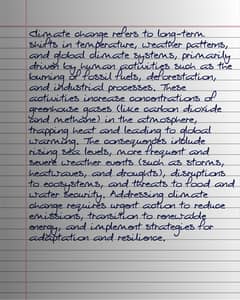 Climate change refers to long-term
shifts in temperature, weather patterns,
and global climate systems, primarily
driven by human activities such as the
burning of fossil fuels, deforestation,
and industrial processes. These
activities increase concentrations of
greenhouse gases (like carbon dioxide
and methane) in the atmosphere,
trapping heat and leading to global
warming. The consequences include
rising sea levels, more frequent and
severe weather events (such as storms,
heatwaves, and droughts), disruptions
to ecosystems, and threats to food and
water security. Addressing climate
change requires urgent action to reduce
emissions, transition to renewable
energy, and implement strategies for
adaptation and resilience.